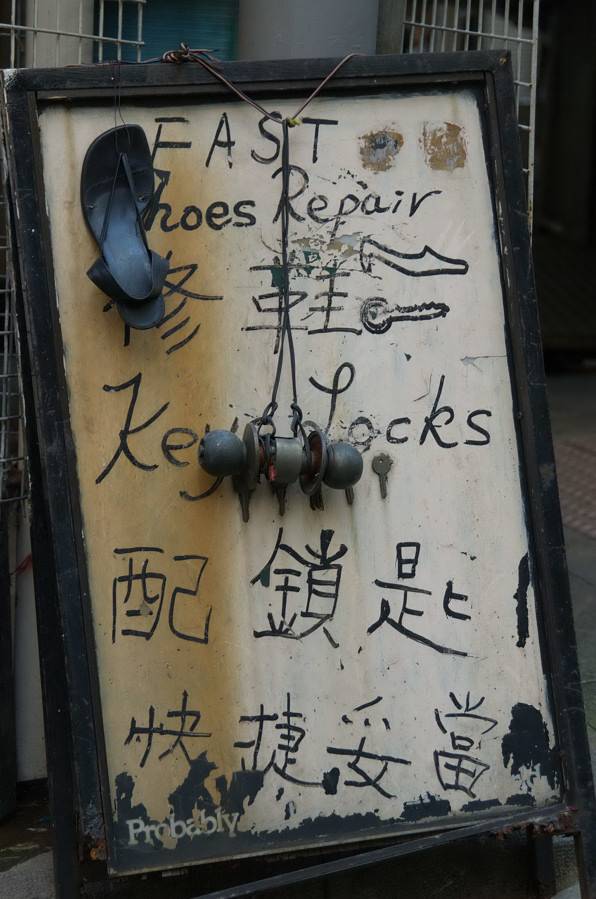 FAST
Shoes Repair
修鞋
Key Locks
配鎖匙
快捷妥當
Probably